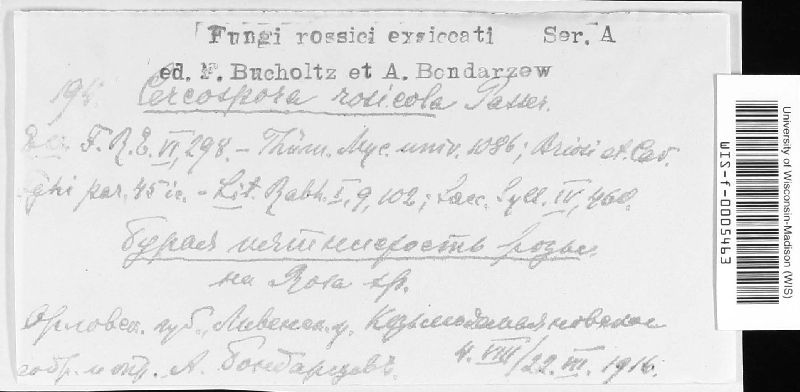 Fungi rossici exsiccati Ser. A
ed. F. Bucholtz et A. Bondarzew
194. Cercospora rosicola Passer.
Exs. F. R. E. VI, 298. – Thüm. Myc. univ. 1086; Briosi et Cav.
Fghi par. 45 ic. – Lit. Rabh. I, 9, 102; Sacc. Syll. IV, 460.
Бурая пятнистость розы.
на Rosa sp.
Орловск. губ., Ливенск. у.
собр. и опр. А. Бондарцевъ. 4. VIII/22. VII. 1916.
University of Wisconsin-Madison (WIS)
WIS-f-0005463